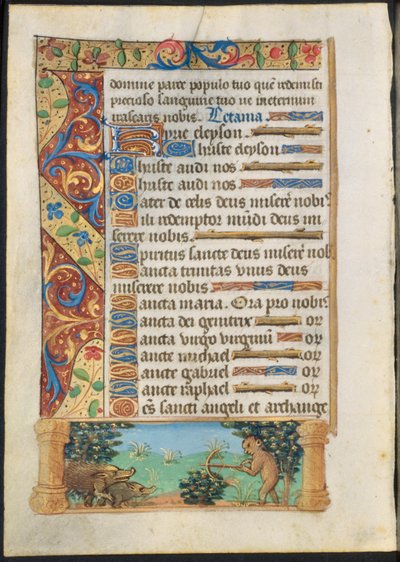 domine parce populo tuo quē redemisti
precioso sanguine tuo ne ineternum
irascaris nobis. Letania.
Kyrie eleyson.
Christe eleyson
Christe audi nos
Christe audi nos
Pater de celis deus miserē nobis
Fili redemptor mūdi deus mi
serere nobis.
Spiritus sancte deus miserē nobis
Sancta trinitas unus deus
miserere nobis
Sancta maria. Ora pro nobis
Sancta dei genitrix or
Sancta virgo virginū or
Sancte michael or
Sancte gabriel or
Sancte raphael or
Oēs sancti angeli et archange